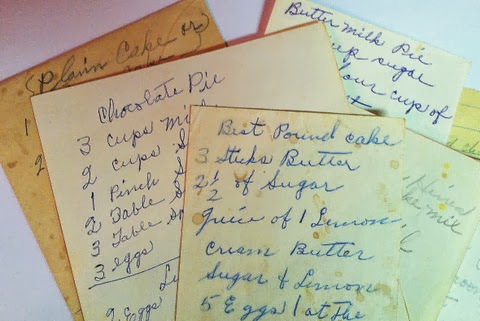 (Plain Cake or
1
2
Chocolate Pie
3 cups mil
2 cups S
1 Pinch S
2 Table S
3 Table Sp
3 eggs
2 Eggs
Butter Milk Pie
up sugar
our cup of
Best Pound cake
3 Sticks Butter
2 1/2 of Sugar
Juice of 1 Lemon,
Cream Butter
Sugar & Lemon
5 Eggs 1 at the